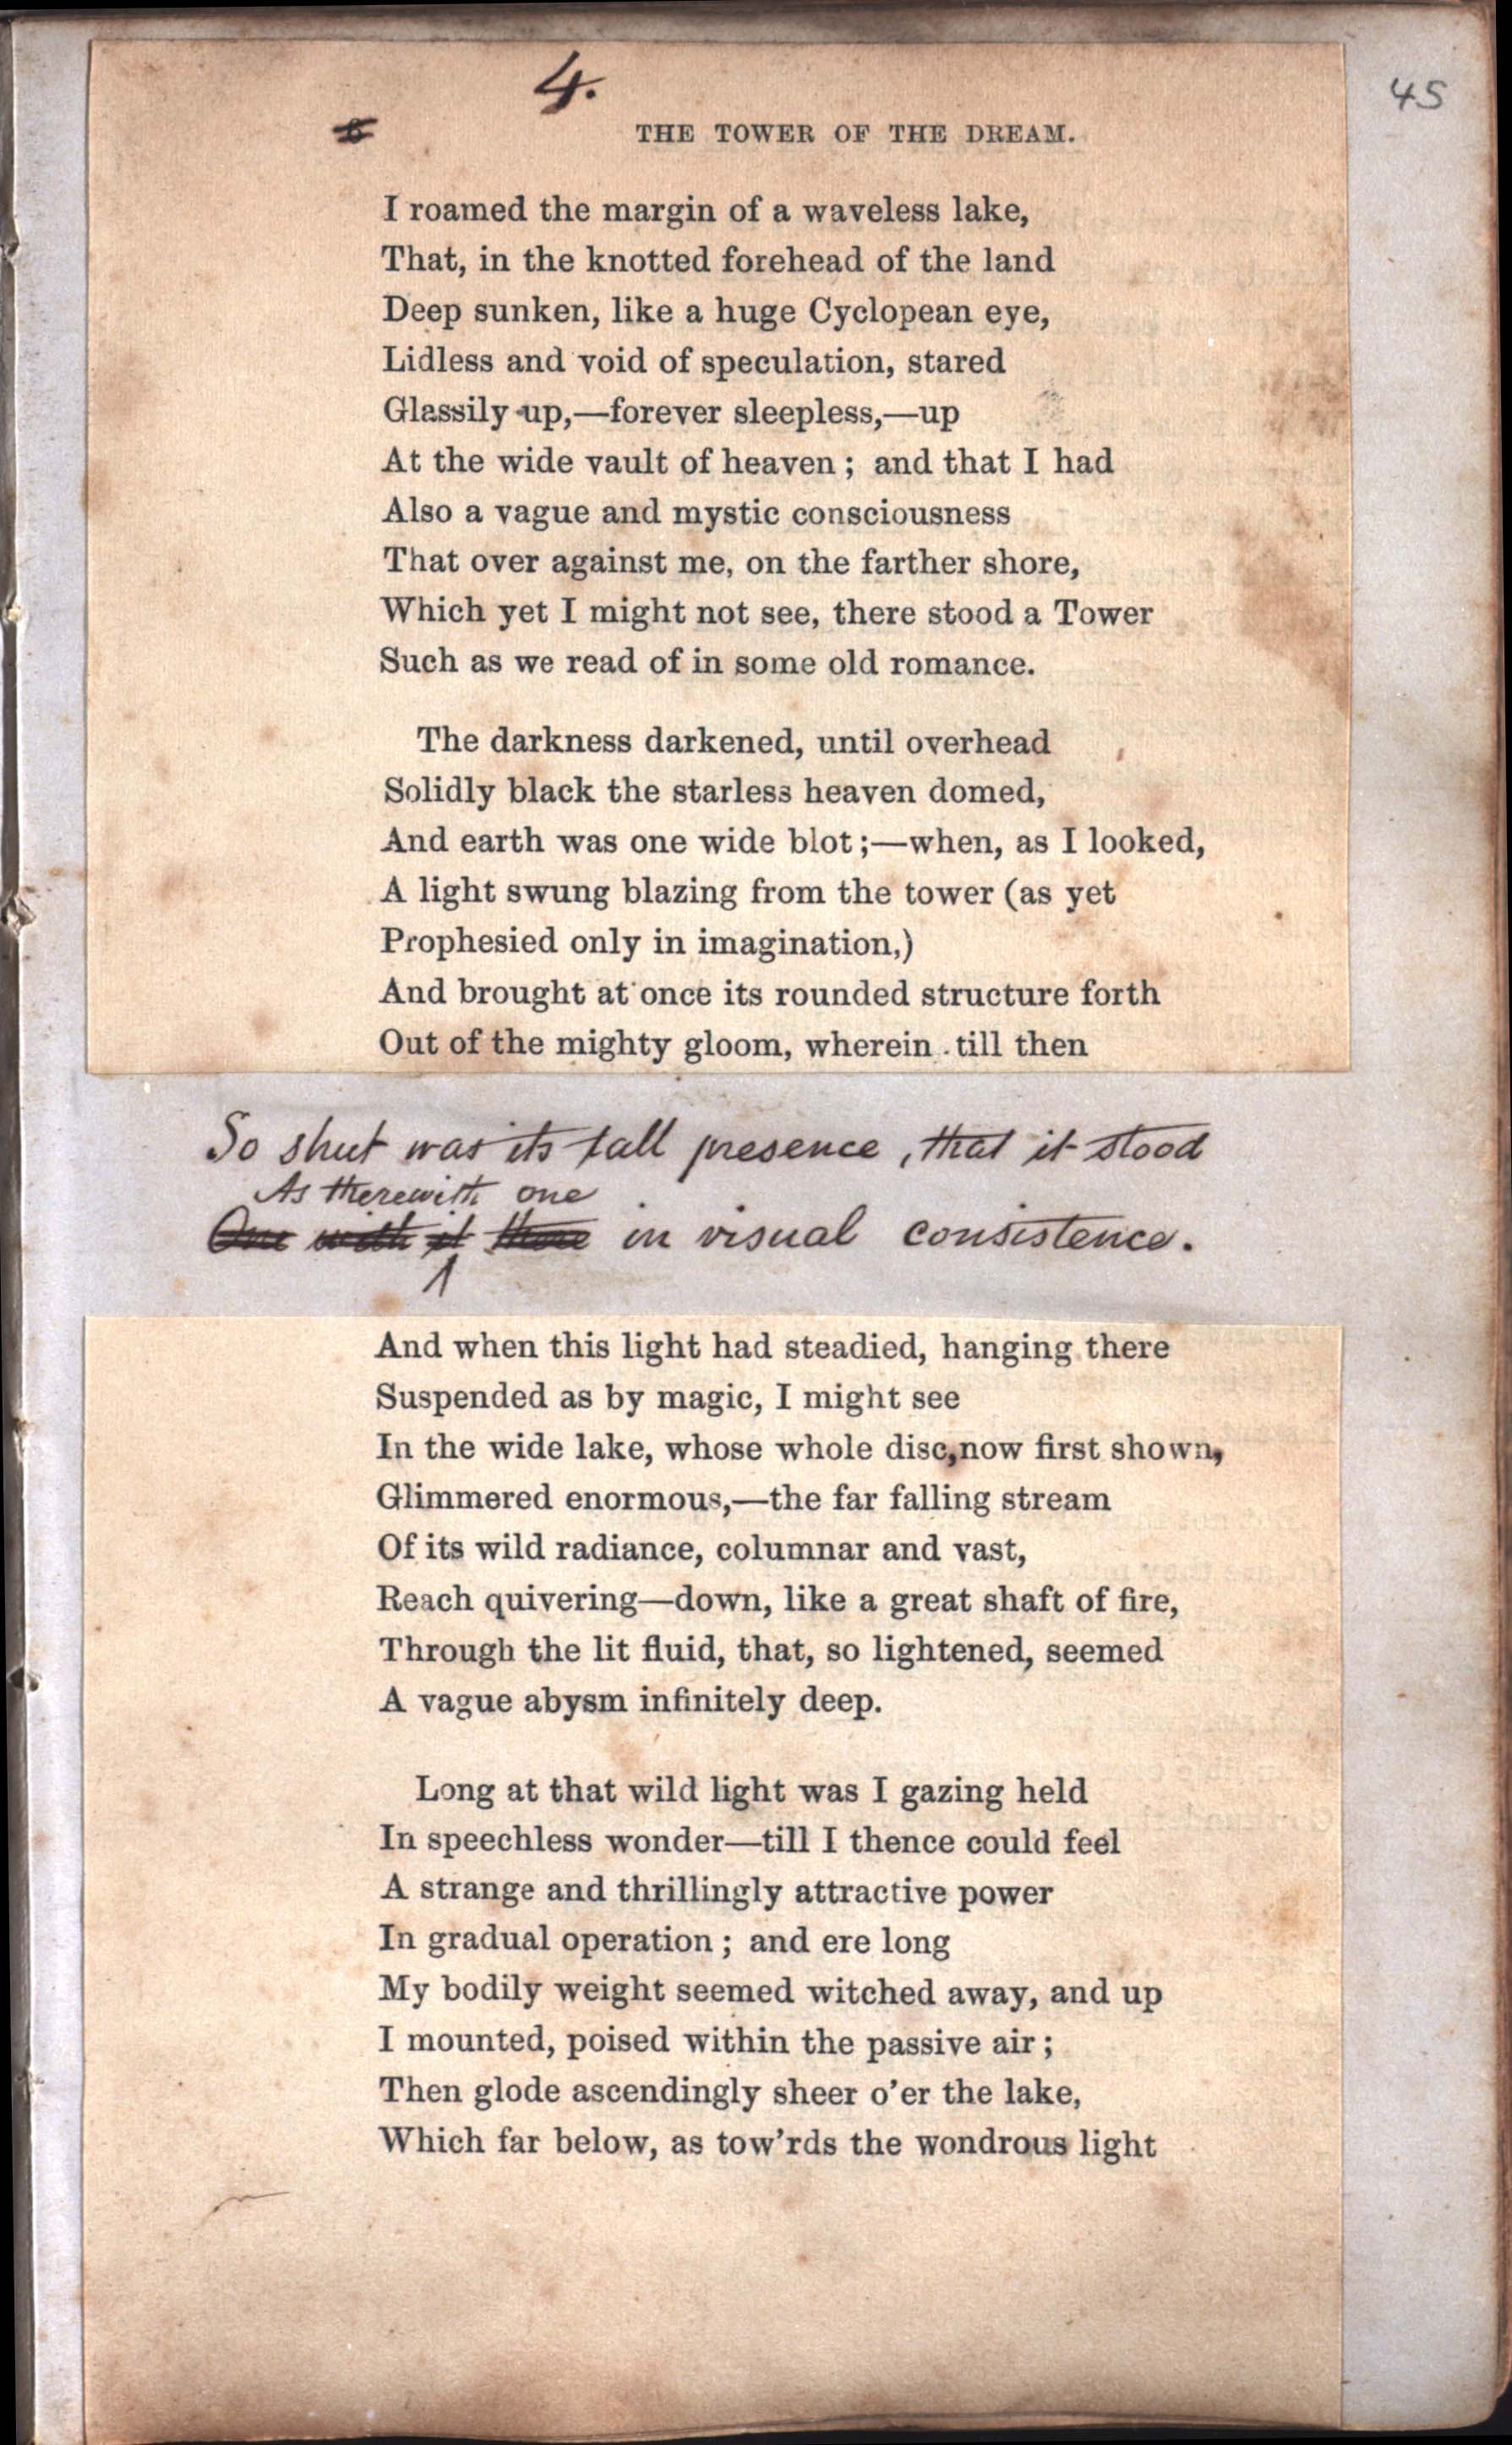 4.
45
6 THE TOWER OF THE DREAM.
I roamed the margin of a waveless lake,
That, in the knotted forehead of the land
Deep sunken, like a huge Cyclopean eye,
Lidless and void of speculation, stared
Glassily up,—forever sleepless,—up
At the wide vault of heaven; and that I had
Also a vague and mystic consciousness
That over against me, on the farther shore,
Which yet I might not see, there stood a Tower
Such as we read of in some old romance.
The darkness darkened, until overhead
Solidly black the starless heaven domed,
And earth was one wide blot;—when, as I looked,
A light swung blazing from the tower (as yet
Prophesied only in imagination,)
And brought at once its rounded structure forth
Out of the mighty gloom, wherein till then
So shut was its tall presence, that it stood
As therewith one
One with it there in visual consistence.
And when this light had steadied, hanging there
Suspended as by magic, I might see
In the wide lake, whose whole disc, now first shown,
Glimmered enormous,—the far falling stream
Of its wild radiance, columnar and vast,
Reach quivering—down, like a great shaft of fire,
Through the lit fluid, that, so lightened, seemed
A vague abysm infinitely deep.
Long at that wild light was I gazing held
In speechless wonder—till I thence could feel
A strange and thrillingly attractive power
In gradual operation; and ere long
My bodily weight seemed witched away, and up
I mounted, poised within the passive air;
Then glode ascendingly sheer o'er the lake,
Which far below, as tow'rds the wondrous light